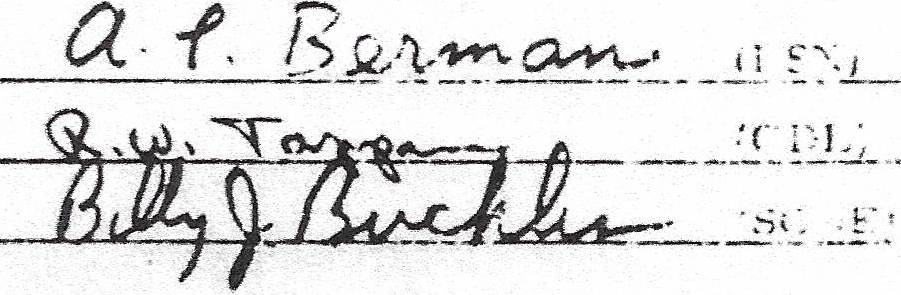 A. P. Berman (LSN)
R.W. Tarpan (CDL)
Billy J. Buckles